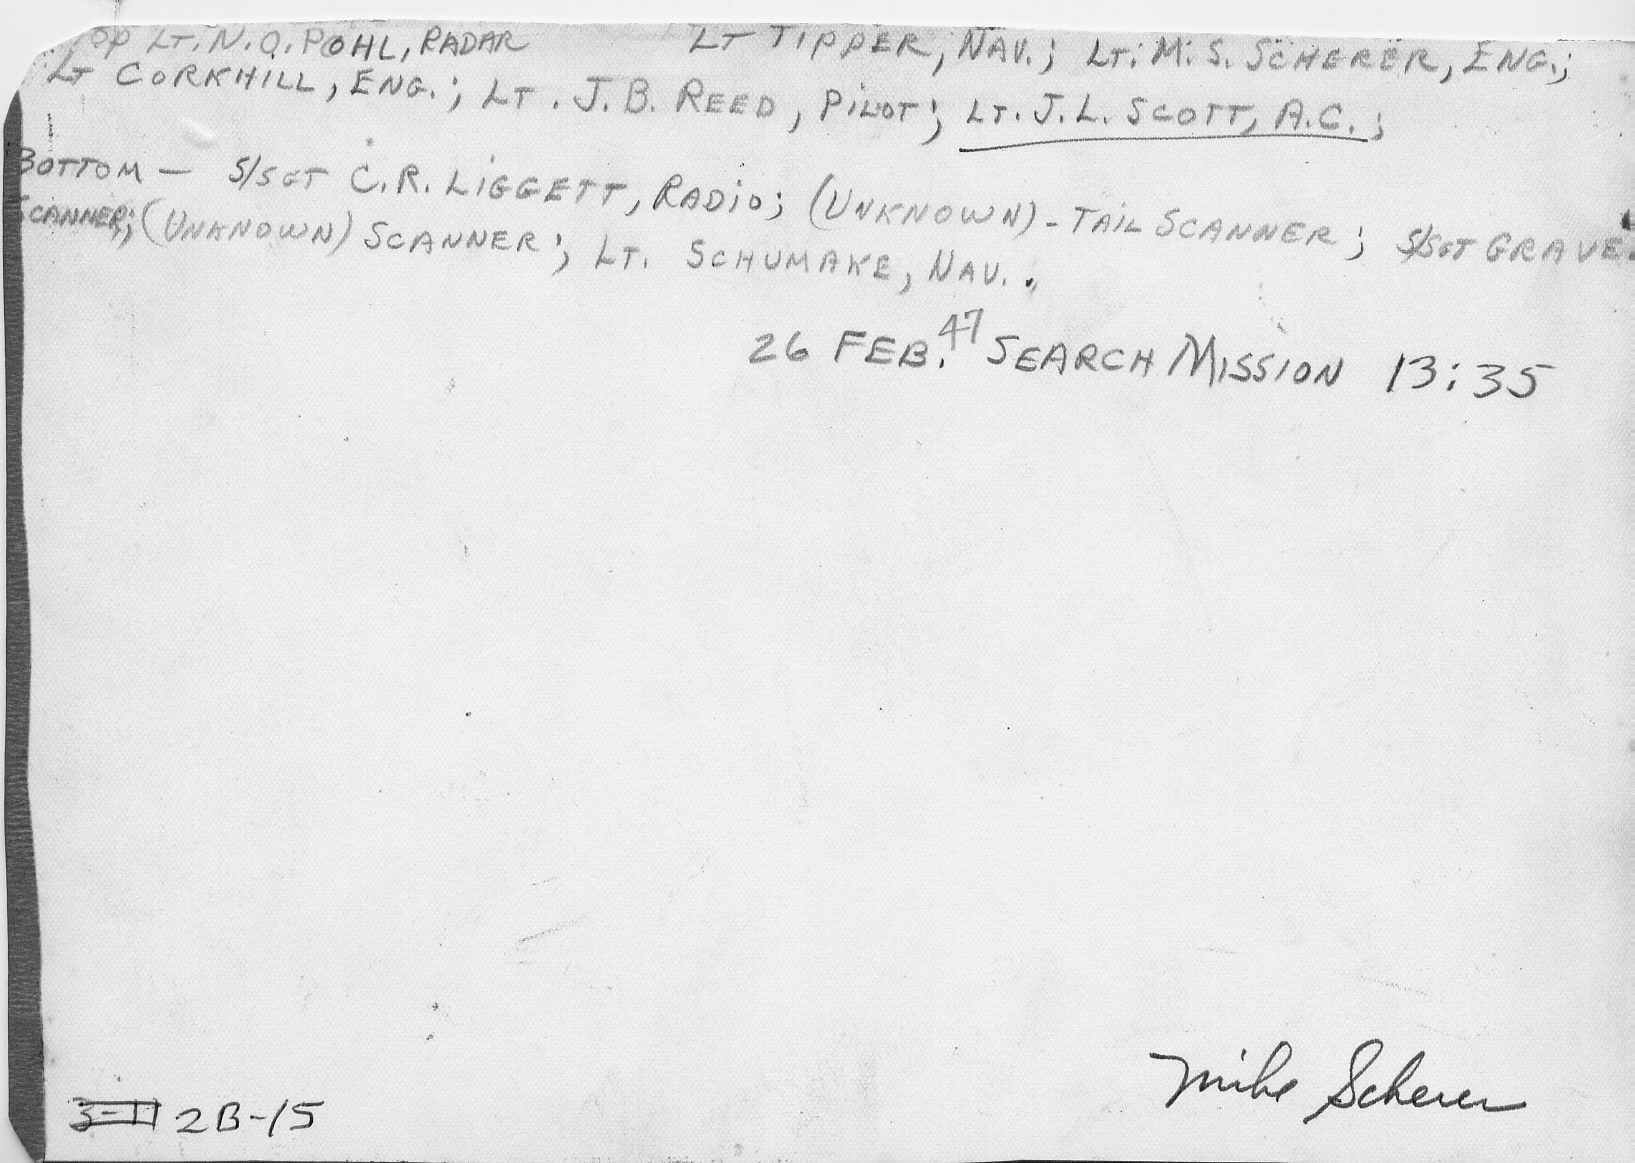 Top Lt. N.O. POHL, RADAR LT TIPPER, NAV.; LT. M. S. SCHERER, ENG.;
LT CORKHILL, ENG.; LT. J. B. REED, PILOT; LT. J. L. SCOTT, A.C.;
BOTTOM — S/SGT C. R. LIGGETT, RADIO; (UNKNOWN) - TAIL SCANNER; S/SGT GRAVE
SCANNER; (UNKNOWN) SCANNER; LT. SCHUMAKE, NAV..
26 FEB. 47 SEARCH MISSION 13:35
Mike Scherer
2B-15